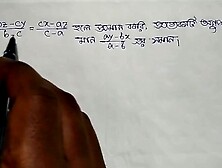 bz-cy/b-c = cx-az/c-a হলে প্রমাণ করি, প্রত্যেকটি অনুপাতের
মান ay-bx/a-b এর সমান।